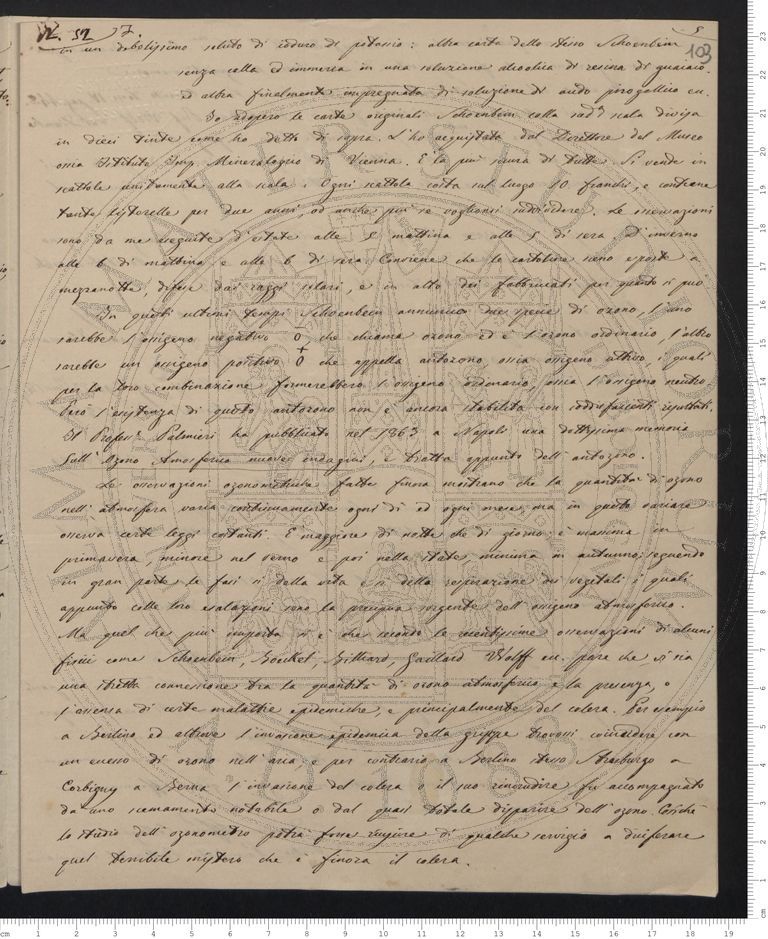 N. 52 7. 5
103
in un debolissimo soluto di ioduro di potassio: altra carta dello stesso Schoenbein
senza colla ed immersa in una soluzione alcoolica di resina di guaiaco.
ed altra finalmente impregnata di soluzione di acido pirogallico ec.
Io adopero le carte originali Schoenbein colla sudª scala divisa
in dieci tinte come ho detto di sopra. L'ho acquistata dal Direttore del Museo
ossia Istituto Imp. Mineralogico di Vienna. È la più sicura di tutte. Si vende in
scattole unitamente alla scala. Ogni scattola costa sul luogo 10 franchi, e contiene
tante listerelle per due anni, ed anche più se vogliansi suddividere. Le osservazioni
sono da me eseguite d'estate alle 5 mattina e alle 5 di sera. D'inverno
alle 6 di mattina e alle 6 di sera. Conviene che le cartoline sieno esposte a
mezzanotte, difese dai raggi solari, e in alto dei fabbricati per quanto si può
In questi ultimi tempi Schoenbein annunciò due specie di ozono, l'uno
sarebbe l'ossigeno negativo Ō che chiama ozono ed è l'ozono ordinario, l'altro
sarebbe un ossigeno positivo O+ che appella antozono ossia ossigeno attivo, i quali
per la loro combinazione formerebbero l'ossigeno ordinario, ossia l'ossigeno neutro.
Però l'esistenza di questo antozono non è ancora stabilita con soddisfacenti risultati.
Il Profess.r Palmieri ha pubblicato nel 1863 a Napoli una dottissima memoria
Sull'Ozono Atmosferico nuove indagini, e tratta appunto dell'antozono.
Le osservazioni ozonometriche fatte finora mostrano che la quantità di ozono
nell'atmosfera varia continuamente ogni dì ed ogni mese, ma in questo variare
osserva certe leggi costanti. È maggiore di notte che di giorno; è massima in
primavera, minore nel verno e poi nella state minima in autunno; seguendo
in gran parte le fasi sì della vita e sì della respirazione dei vegetali i quali
appunto colle loro esalazioni sono la precipua sorgente dell'ossigeno atmosferico.
Ma quel che più importa si è che secondo le recentissime osservazioni di alcuni
fisici come Schoenbein, Boeckel, Billiard, Gaillard Wolff ecc. pare che vi sia
una stretta connessione tra la quantità di ozono atmosferico e la presenza, o
l'assenza di certe malattie epidemiche, e principalmente del colera. Per esempio
a Berlino ed altrove l'invasione epidemica della grippe trovossi coincidere con
un eccesso di ozono nell'aria, e per contrario a Berlino stesso Strasburgo a
Corbigny a Berna l'invasione del colera o il suo rincrudire fu accompagnato
da uno scemamento notabile o dal quasi totale disparire dell'ozono. Cosichè
lo studio dell'ozonometro potrà forse riuscire di qualche servizio a diciferare
quel terribile mistero che è finora il colera.